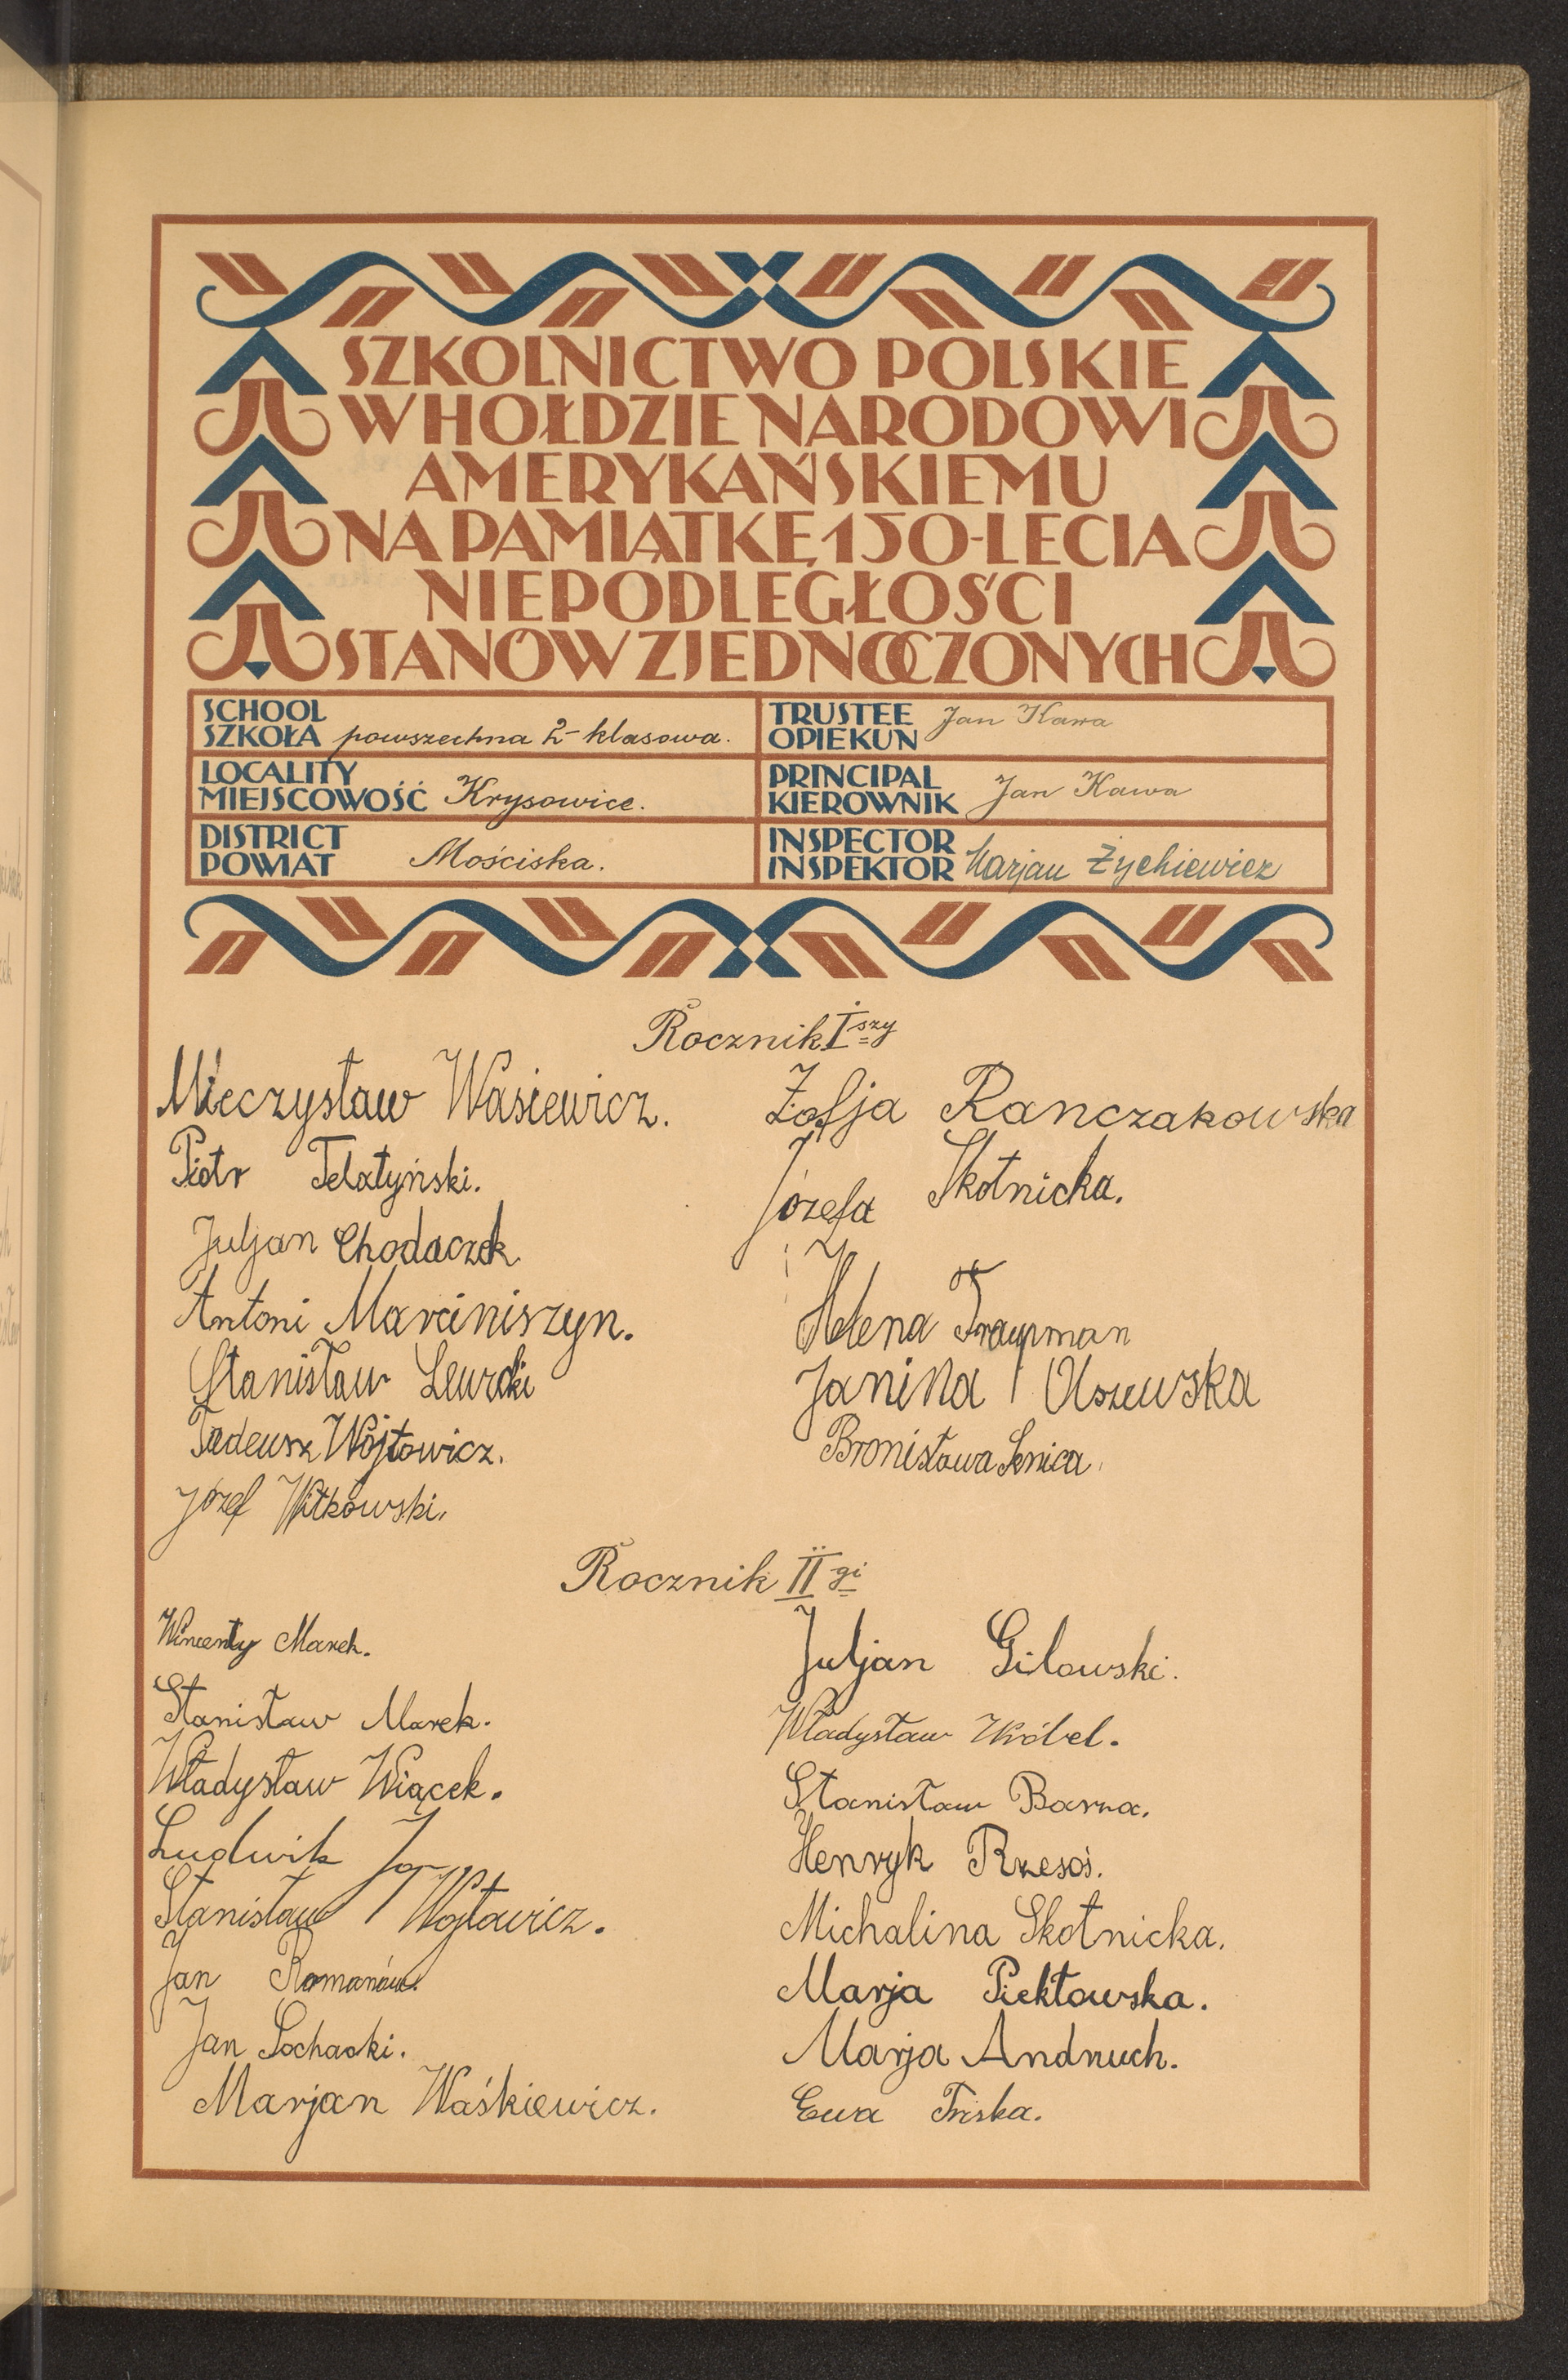 SZKOLNICTWO POLSKIE
W HOŁDZIE NARODOWI
AMERYKAŃSKIEMU
NA PAMIĄTKĘ 150-LECIA
NIEPODLEGŁOŚCI
STANÓW ZJEDNOCZONYCH
SCHOOL
SZKOŁA powszechna 2-klasowa.
LOCALITY
MIEJSCOWOŚĆ Krysowice.
DISTRICT
POWIAT Mościska.
TRUSTEE
OPIEKUN Jan Kawa
PRINCIPAL
KIEROWNIK Jan Kawa
INSPECTOR
INSPEKTOR Marjan Żychiewicz
Rocznik I szy
Mieczysław Wasiewicz.
Piotr Telatyński.
Juljan Chodaczek
Antoni Marciniszyn.
Stanisław
Tadeusz Wójtowicz.
Józef Witkowski.
Zofja Ranczakowska
Józefa Skotnicka.
Helena Traupman
Janina Olszewska
Bronisława Senica.
Rocznik II gi
Wincenty Marek.
Stanisław Marek.
Władysław Wiącek.
Ludwik
Stanisław Wojtowicz.
Jan Romanów.
Jan Sochacki.
Marjan Waśkiewicz.
Juljan Gilowski.
Władysław Wróbel.
Stanisław Barna.
Henryk Rzesoś.
Michalina Skotnicka.
Marja Piekłowska.
Marja Andruch.
Ewa Triska.